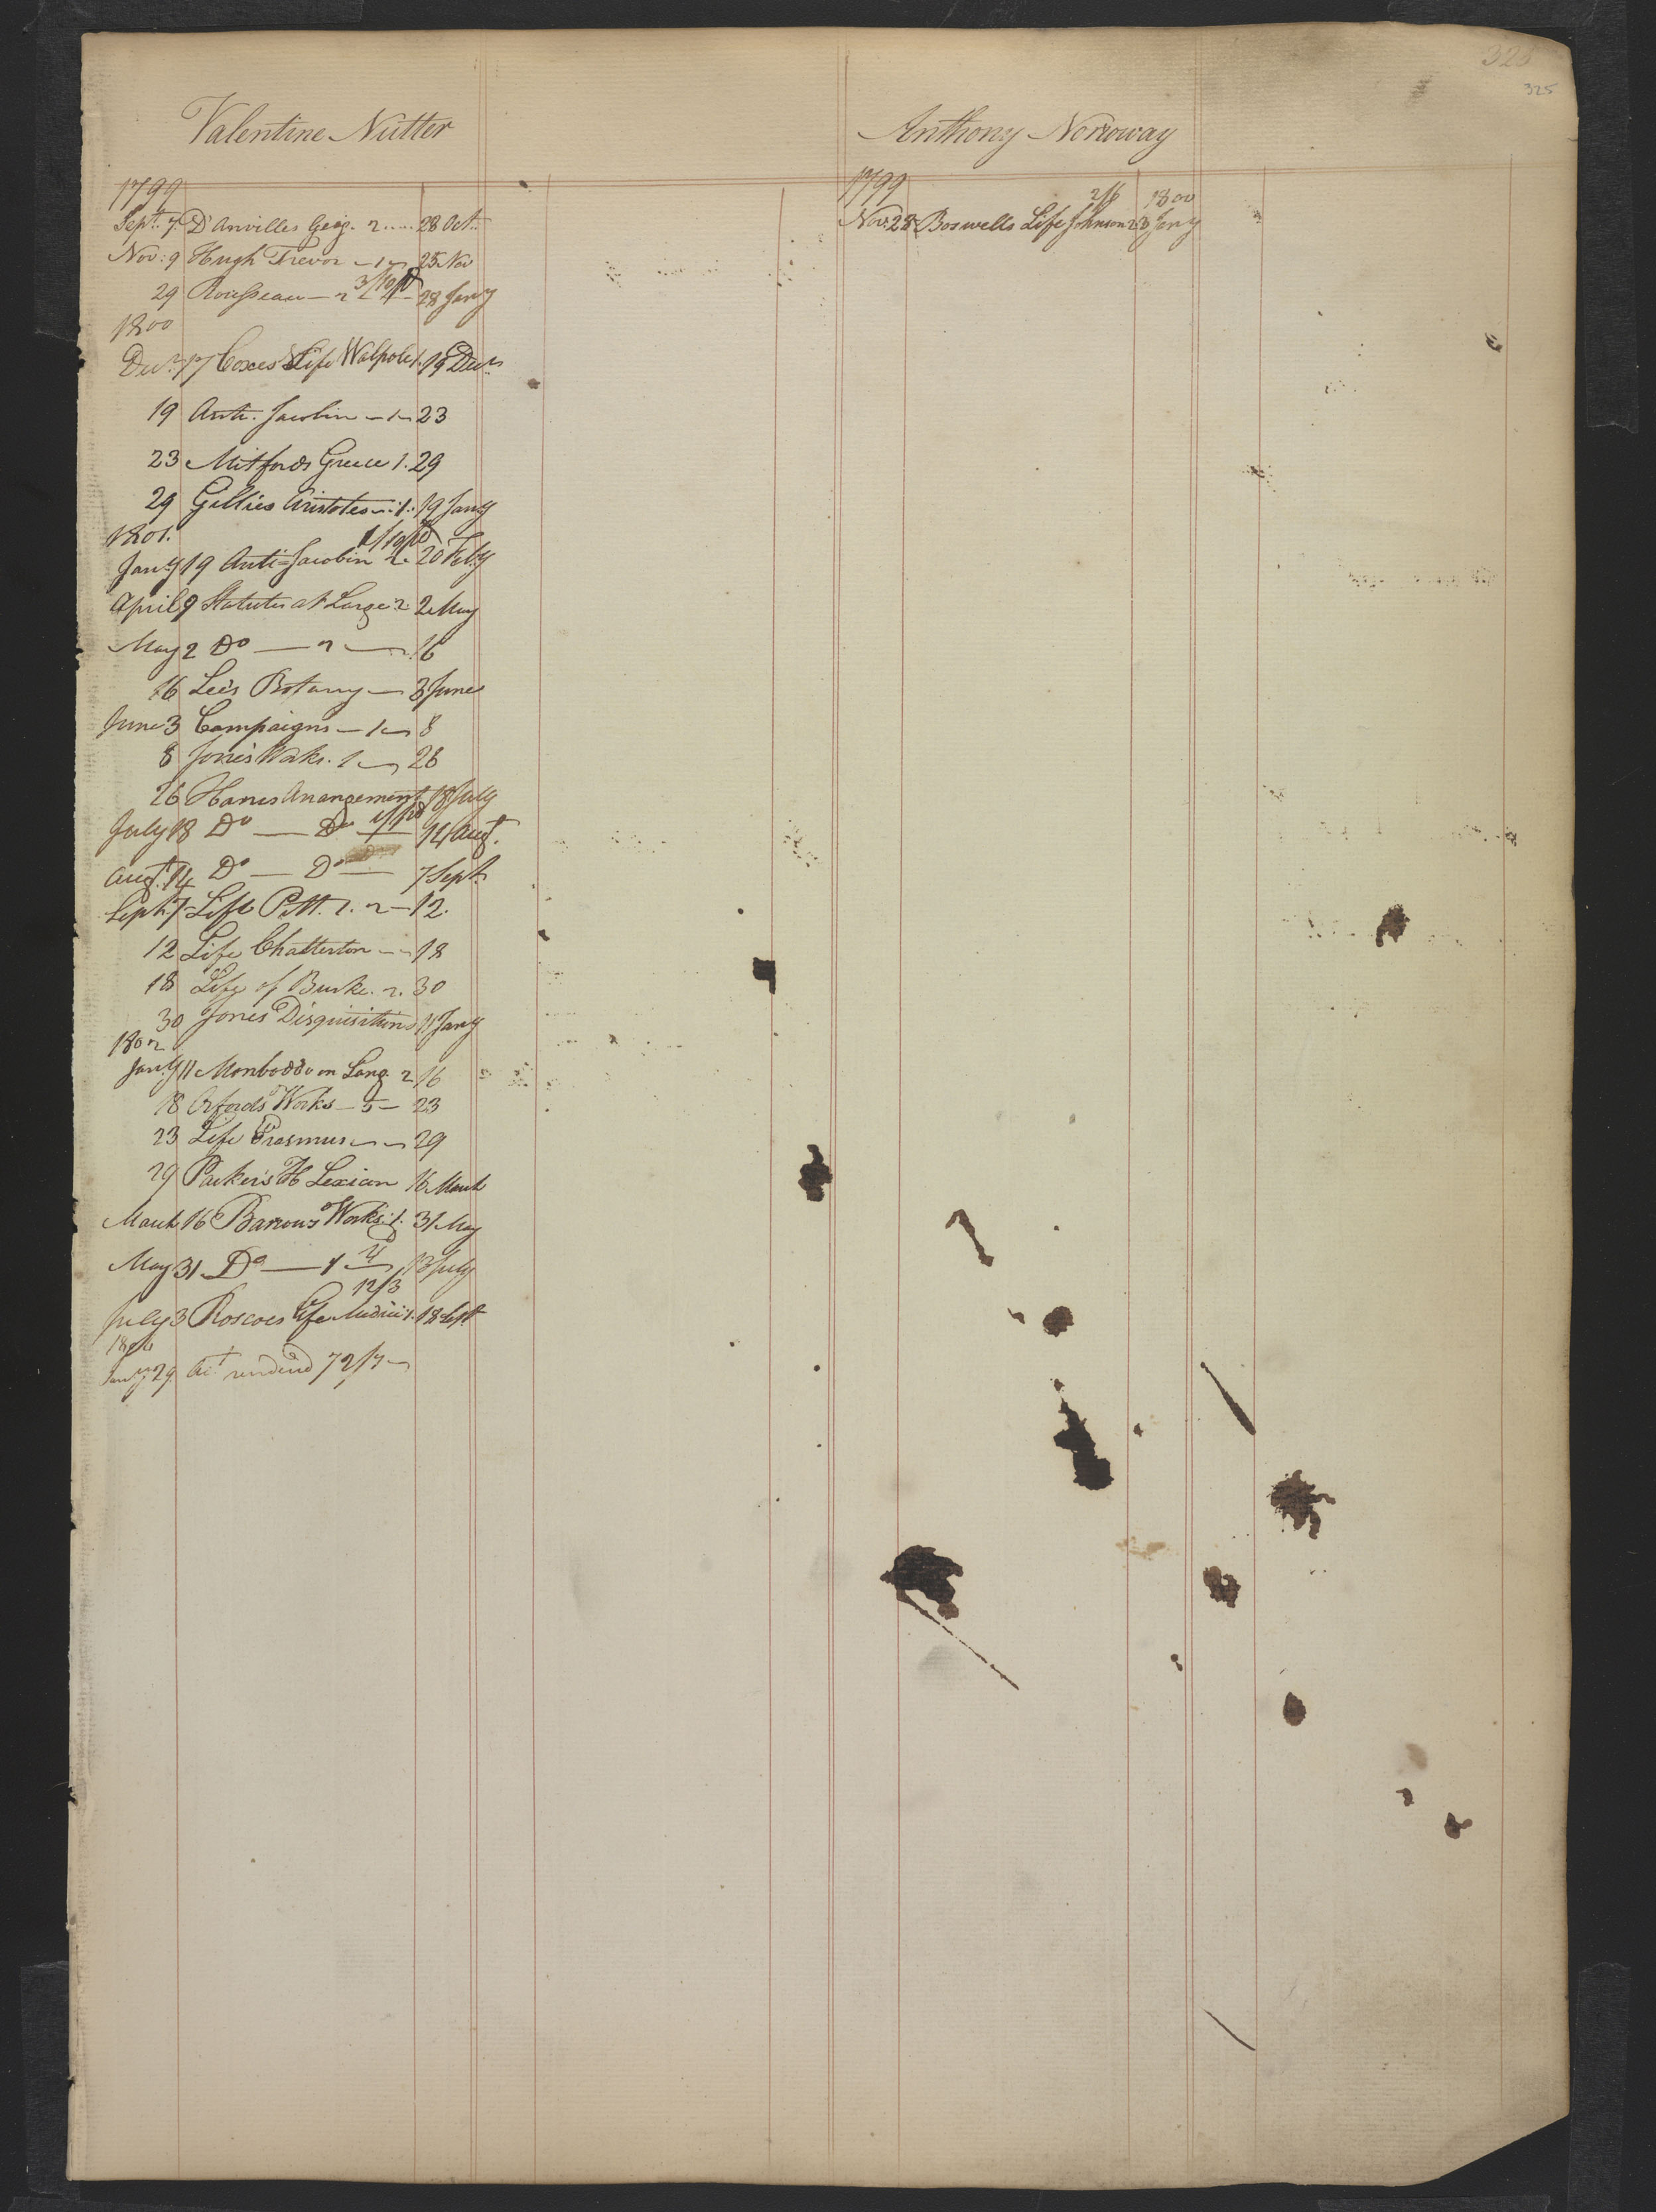 328
325
Valentine Nutter
1799
Sept. 7 D'Anvilles Geog. 2 ..... 28 Oct.
Nov: 9 Hugh Trevor — 1 — 25 Nov
29 Rousseau — 2 3/10 pd 28 Jany
1800
Decr. 17 Coxes Life Walpole 1. 19 Decr.
19 Anti. Jacobin — 1 — 23
23 Mitfords Greece 1. 29
29 Gillies Aristotes — 1. 19 Jany
1801.
Jany 19 Anti-Jacobin 2. 1/10 pd 20 Feby
April 9 Statutes at Large 2 2 May
May 2 Do — 2 — 16
16 Lee's Botany — 3 June
June 3 Campaigns — 1 — 8
8 Jones Works. 1 — 26
26 Hanes Arangement 18 July
July 18 Do — Do 1/ pd 14 Augt.
Augt. 14 Do — Do — 7 Sept.
Sept. 7 Life Pitt. 1. 2 — 12.
12 Life Chatterton — 18
18 Life of Burke. 2. 30
30 Jones Disquisitions 11 Jany
1802
Jany 11 Monboddo on Lang. 2 16
18 Orfords Works — 5 — 23
23 Life Erasmus — 29
29 Parker's H Lexicon 16 March
March 16 Barrows Works. 1. 31 May
May 31 Do — 1 4/ 13 July
12/3
July 3 Roscoes Life Medicii 1. 18 Sept
Jany 29. Act. rendered 72/7 —
Anthony Norroway
1799 2/6 1800
Nov. 28 Boswells Life Johnson 2 3 Jany